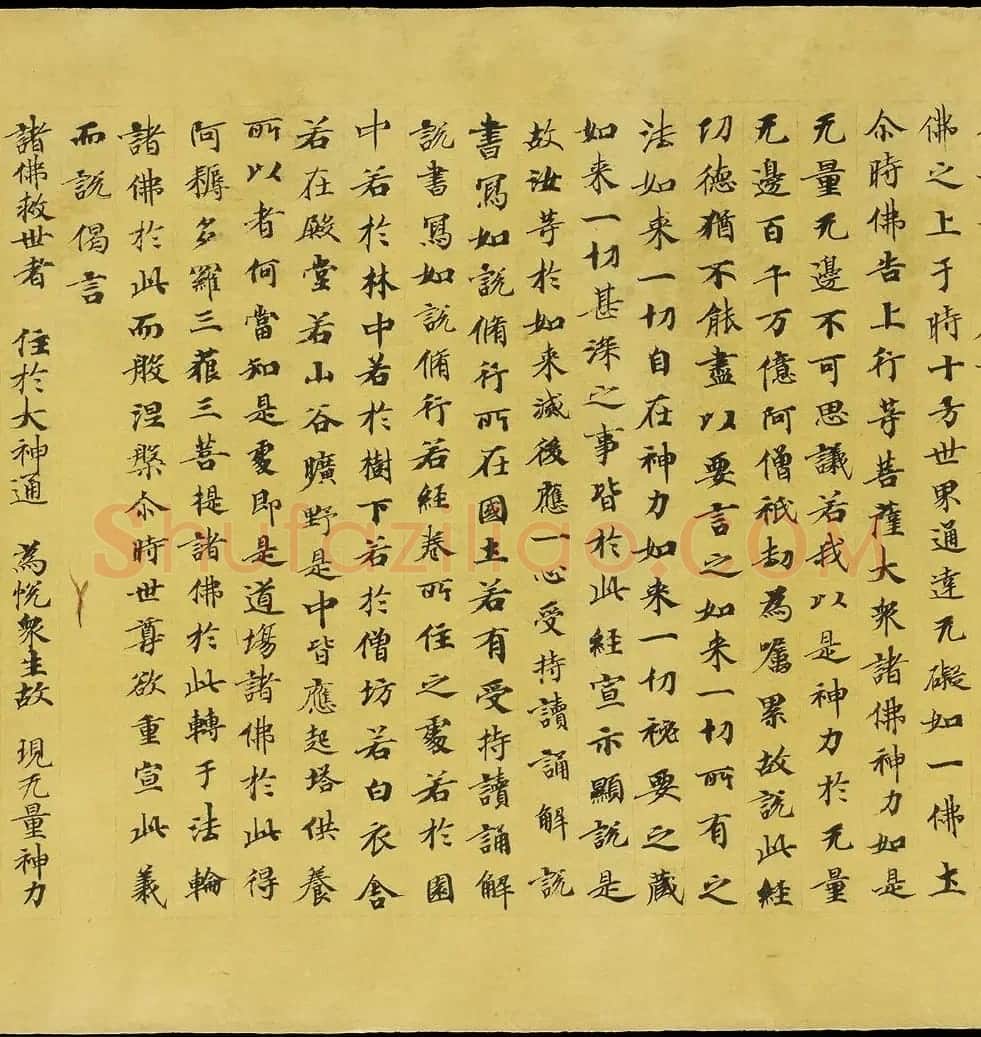 佛之上于時十方世界通達无礙如一佛土
尒時佛告上行等菩薩大衆諸佛神力如是
无量无邊不可思議若我以是神力於无量
无邊百千万億阿僧祇劫為嘱累故說此経
功德猶不能盡以要言之如来一切所有之
法如来一切自在神力如来一切祕要之藏
如来一切甚深之事皆於此経宣示顯說是
故汝等於如来滅後應一心受持讀誦解說
書寫如說脩行所在國土若有受持讀誦解
說書寫如說脩行若経卷所住之處若於園
中若於林中若於樹下若於僧坊若白衣舍
若在殿堂若山谷曠野是中皆應起塔供養
所以者何當知是處即是道場諸佛於此得
阿耨多羅三藐三菩提諸佛於此轉于法輪
諸佛於此而般涅槃尒時世尊欲重宣此義
而說偈言
諸佛救世者 住於大神通 為悅衆生故 現无量神力
Shufaziliao.COM